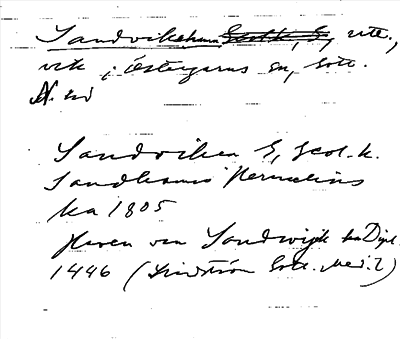 Sandvikehamn, utt.,
vik i Östergarns sn, Gotl.
N. sid
Sandviken G, Geol. k.
Sandhamn Hermelins
ka 1805
Haven van Sandwijk Dipl.
1446 (Lindström Gotl. Med. 2)